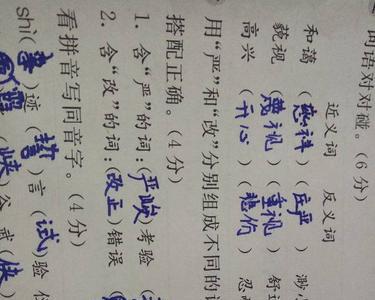 词语对对碰。(6分)
近义词 反义词
和蔼 (慈祥) (庄严) 渺小
藐视 (蔑视) (重视) 舒适
高兴 (开心) (悲伤)
用“严”和“改”分别组成不同的
搭配正确。(4分)
1. 含“严”的词:严峻 考验
2. 含“改”的词:改正 错误
看拼音写同音字。(4分)
shì(事)迹 (誓)言 (试)验
(峡)谷 武(侠)